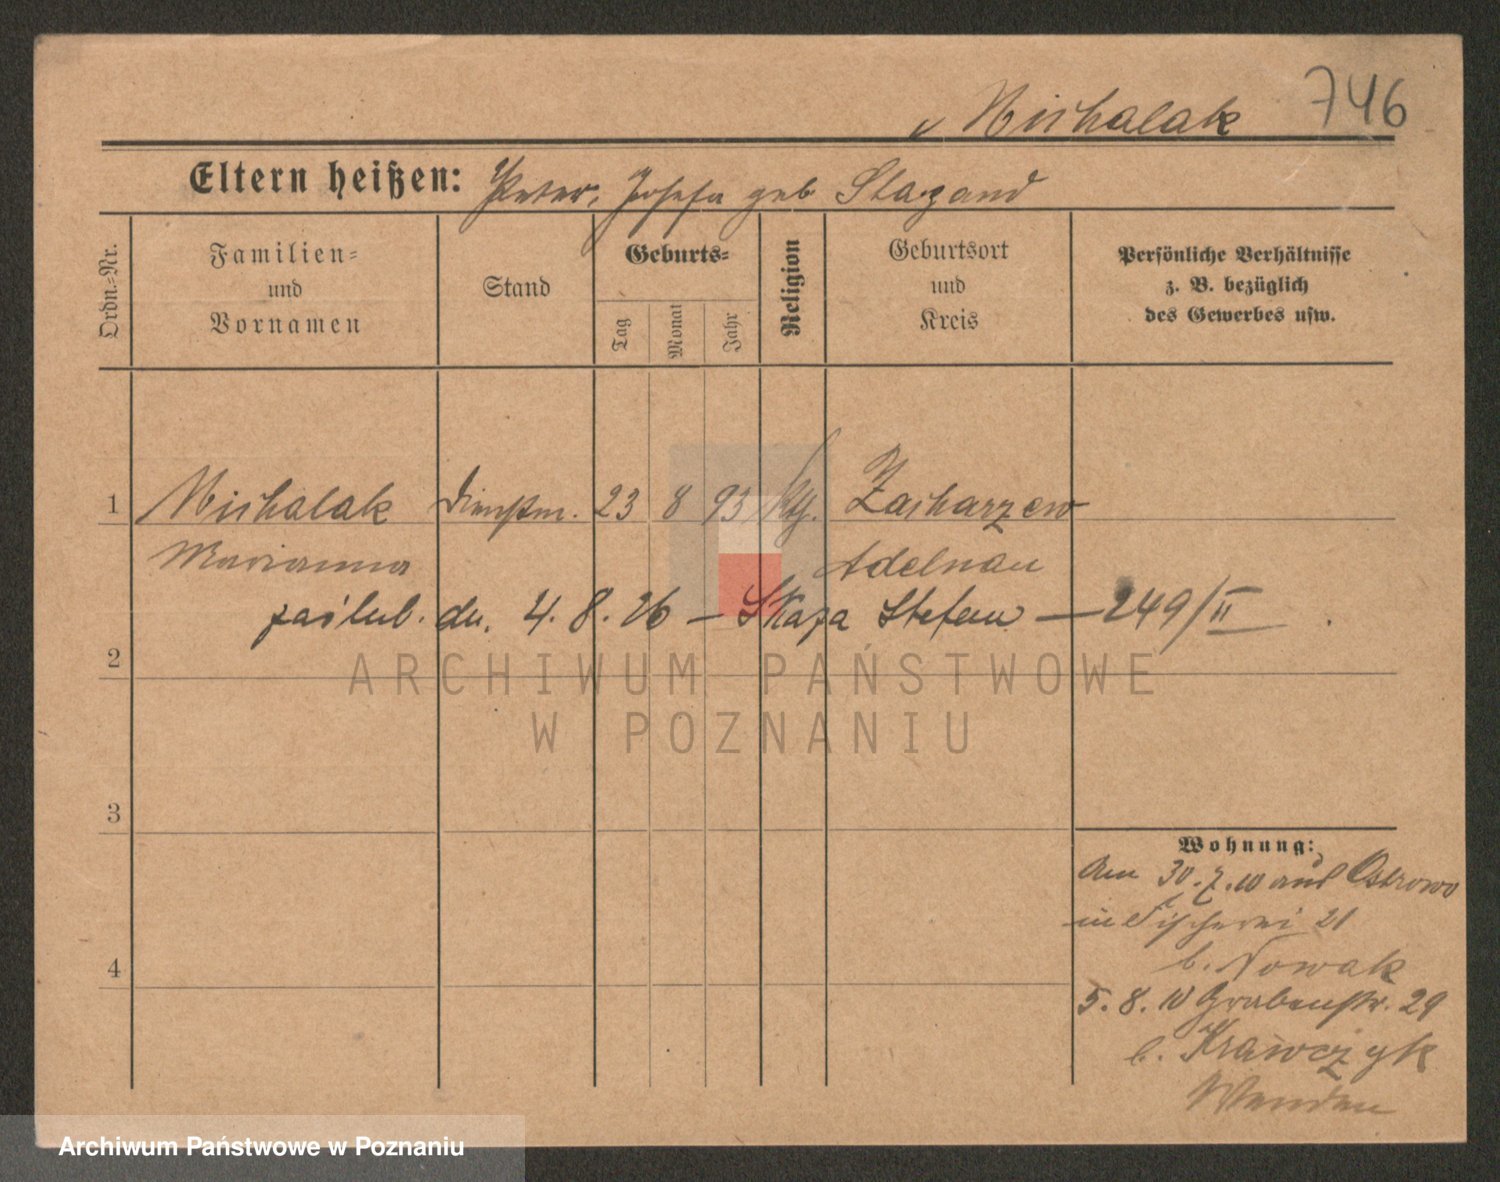 Michalak 746
Eltern heißen: Peter, Josefa geb
Ordn.-Nr.
Familien-
und
Vornamen
Stand
Geburts-
Tag
Monat
Jahr
Religion
Geburtsort
und
Kreis
Persönliche Verhältnisse
z. B. bezüglich
des Gewerbes usw.
1 Michalak Dienstm. 23 8 93 kth. Zacharzew
Marianna Adelnau
zaślub. dn. 4. 8. 26 – Skaza Stefan — 249/II
2
ARCHIWUM PAŃSTWOWE
W POZNANIU
3
Wohnung:
Am 30.7.10 aus Ostrowo
in Fischerei 21
b. Nowak
4
5. 8. 10 Grabenstr. 29
b. Krawczyk
Archiwum Państwowe w Poznaniu